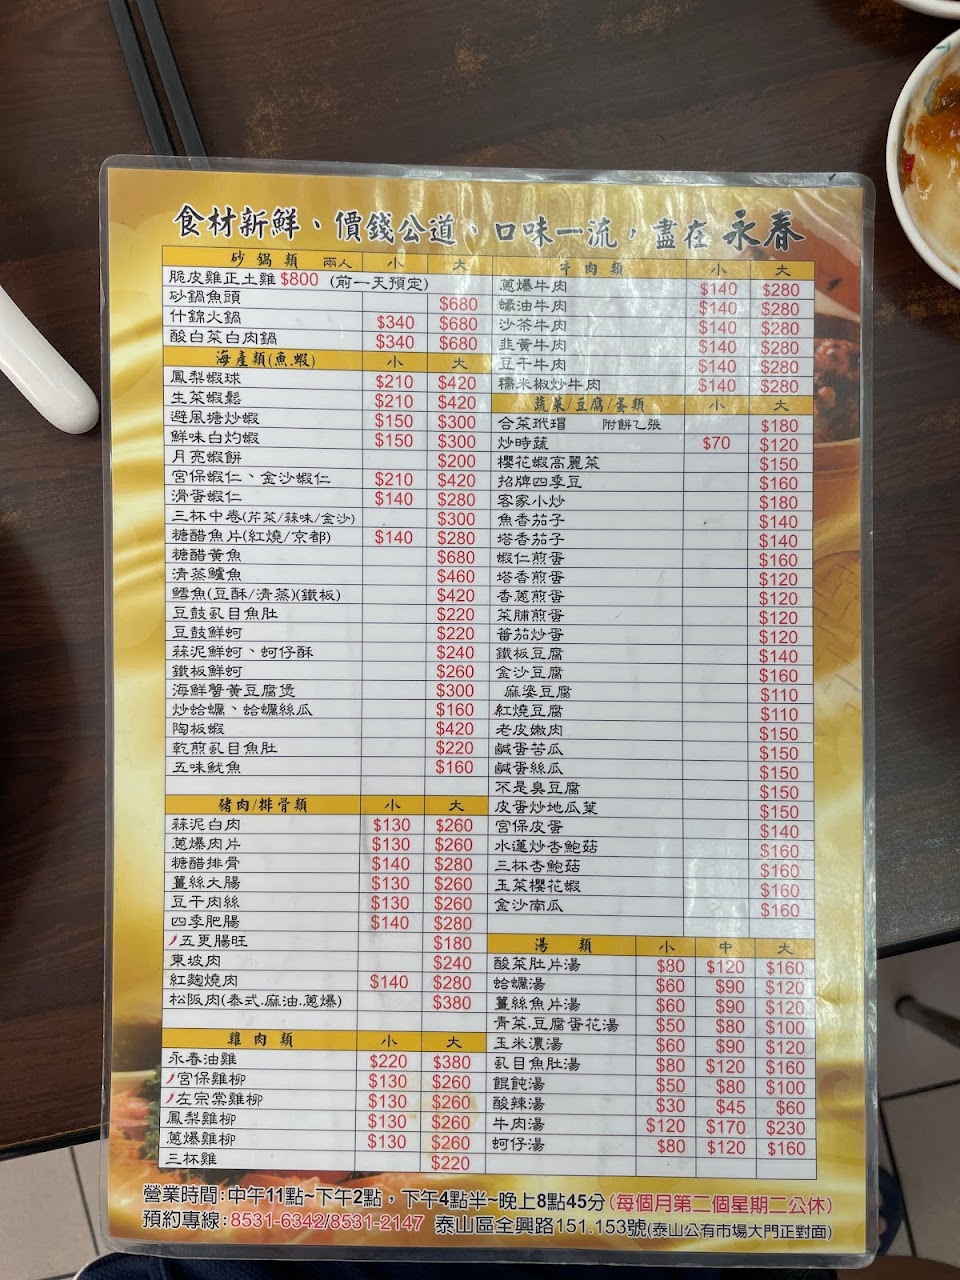 食材新鮮、價錢公道、口味一流,盡在 永春
砂鍋類 兩人 小 大
脆皮雞正土雞 $800 (前一天預定)
砂鍋魚頭 $680
什錦火鍋 $340 $680
酸白菜白肉鍋 $340 $680
海產類(魚.蝦) 小 大
鳳梨蝦球 $210 $420
生菜蝦鬆 $210 $420
避風塘炒蝦 $150 $300
鮮味白灼蝦 $150 $300
月亮蝦餅 $200
宮保蝦仁、金沙蝦仁 $210 $420
滑蛋蝦仁 $140 $280
三杯中卷(芹菜/蒜味/金沙) $300
糖醋魚片(紅燒/京都) $140 $280
糖醋黃魚 $680
清蒸鱸魚 $460
鱈魚(豆酥/清蒸)(鐵板) $420
豆鼓虱目魚肚 $220
豆鼓鮮蚵 $220
蒜泥鮮蚵、蚵仔酥 $240
鐵板鮮蚵 $260
海鮮蟹黃豆腐煲 $300
炒蛤蠣、蛤蠣絲瓜 $160
陶板蝦 $420
乾煎虱目魚肚 $220
五味魷魚 $160
豬肉/排骨類 小 大
蒜泥白肉 $130 $260
蔥爆肉片 $130 $260
糖醋排骨 $140 $280
薑絲大腸 $130 $260
豆干肉絲 $130 $260
四季肥腸 $140 $280
五更腸旺 $180
東坡肉 $240
紅麴燒肉 $140 $280
松阪肉(泰式.麻油.蔥爆) $380
雞肉類 小 大
永春油雞 $220 $380
宮保雞柳 $130 $260
左宗棠雞柳 $130 $260
鳳梨雞柳 $130 $260
蔥爆雞柳 $130 $260
三杯雞 $220
牛肉類 小 大
蔥爆牛肉 $140 $280
蠔油牛肉 $140 $280
沙茶牛肉 $140 $280
韭黃牛肉 $140 $280
豆干牛肉 $140 $280
糯米椒炒牛肉 $140 $280
蔬菜/豆腐/蛋類 小 大
合菜玳瑁 附餅乙張 $180
炒時蔬 $70 $120
櫻花蝦高麗菜 $150
招牌四季豆 $160
客家小炒 $180
魚香茄子 $140
塔香茄子 $140
蝦仁煎蛋 $160
塔香煎蛋 $120
香蔥煎蛋 $120
菜脯煎蛋 $120
蕃茄炒蛋 $120
鐵板豆腐 $140
金沙豆腐 $160
麻婆豆腐 $110
紅燒豆腐 $110
老皮嫩肉 $150
鹹蛋苦瓜 $150
鹹蛋絲瓜 $150
不是臭豆腐 $150
皮蛋炒地瓜葉 $150
宮保皮蛋 $140
水蓮炒杏鮑菇 $160
三杯杏鮑菇 $160
玉菜櫻花蝦 $160
金沙南瓜 $160
湯類 小 中 大
酸菜肚片湯 $80 $120 $160
蛤蠣湯 $60 $90 $120
薑絲魚片湯 $60 $90 $120
青菜.豆腐蛋花湯 $50 $80 $100
玉米濃湯 $60 $90 $120
虱目魚肚湯 $80 $120 $160
餛飩湯 $50 $80 $100
酸辣湯 $30 $45 $60
牛肉湯 $120 $170 $230
蚵仔湯 $80 $120 $160
營業時間:中午11點~下午2點,下午4點半~晚上8點45分(每個月第二個星期二公休)
預約專線:8531-6342/8531-2147 泰山區全興路151.153號(泰山公有市場大門正對面)